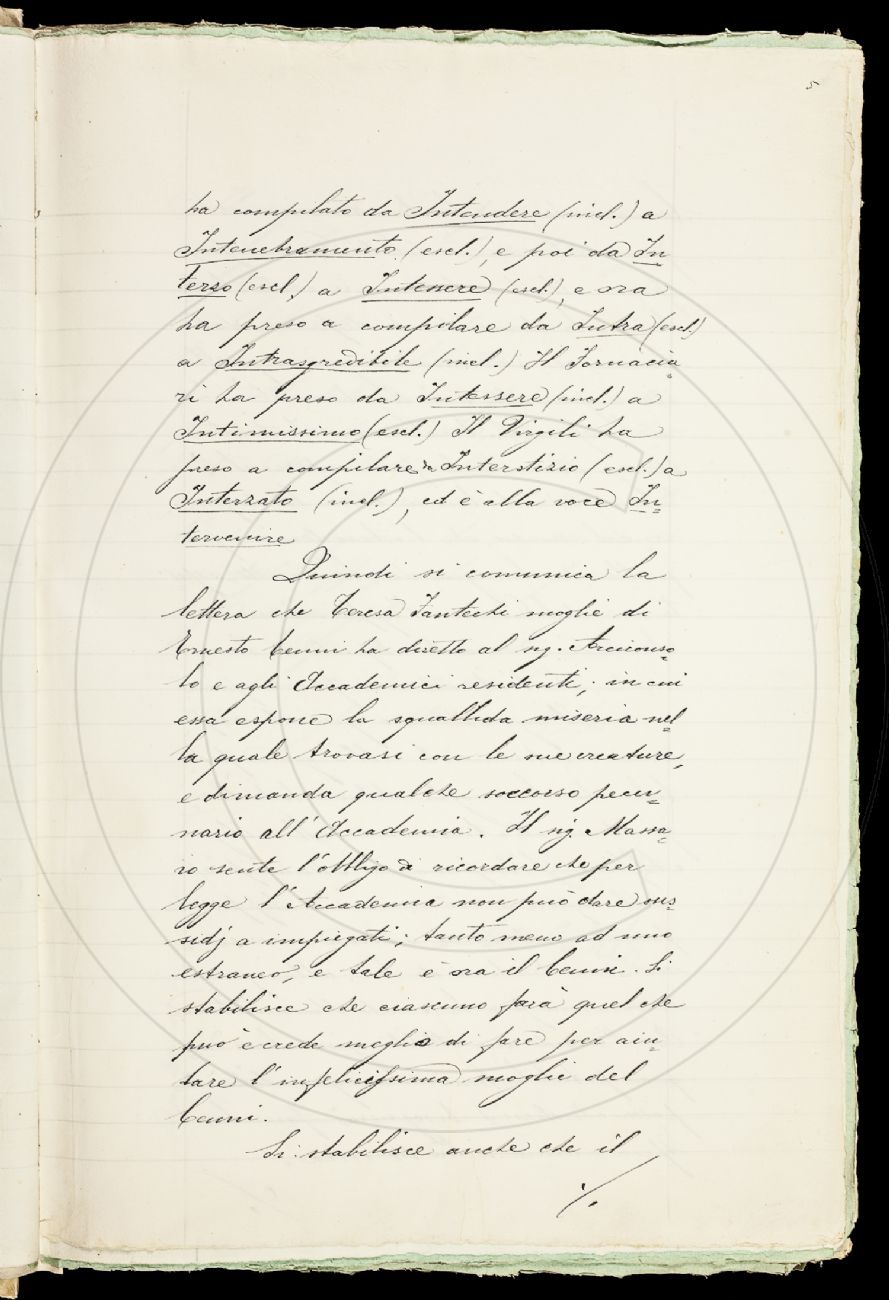 5
ha compilato da Intendere (incl.) a
Intenebramento (escl.), e poi da In
terzo (escl.) a Intenere (escl.), e ora
ha preso a compilare da Intra (escl.)
a Intrasgredibile (incl.) Il Fornacia=
ri ha preso da Intessere (incl.) a
Intimissimo (escl.) Il Virgili ha
preso a compilare da Interstizio (escl.) a
Interzato (incl.), ed è alla voce In=
tervenire
Quindi si comunica la
lettera che Teresa Fantechi moglie di
Ernesto Cenni ha diretto al sig. Arciconso=
lo e agli Accademici residenti; in cui
essa espone la squallida miseria nel=
la quale trovasi con le sue creature,
e dimanda qualche soccorso pecu=
nario all'Accademia. Il sig. Massa=
ro sente l'obbligo di ricordare che per
legge l'Accademia non può dare sus=
sidj a impiegati; tanto meno ad uno
estraneo, e tale è ora il Cenni. Si
stabilisce che ciascuno farà quel che
può e crede meglio di fare per aiu=
tare l'infelicissima moglie del
Cenni.
Si stabilisce anche che il
./.